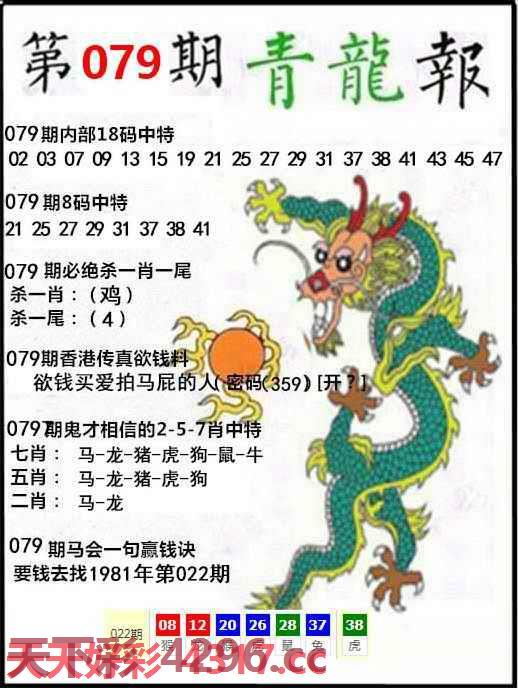 第079期青龍報
079期内部18码中特
02 03 07 09 13 15 19 21 25 27 29 31 37 38 41 43 45 47
079期8码中特
21 25 27 29 31 37 38 41
079 期必绝杀一肖一尾
杀一肖：(鸡)
杀一尾：(4)
079期香港传真欲钱料
欲钱买爱拍马屁的人(密码(359)[开?]
079期鬼才相信的2-5-7肖中特
七肖： 马-龙-猪-虎-狗-鼠-牛
五肖： 马-龙-猪-虎-狗
二肖： 马-龙
079 期马会一句赢钱诀
要钱去找1981年第022期
022期 08 12 20 26 28 37 38
猴 龙 鼠 兔 虎
天天好彩